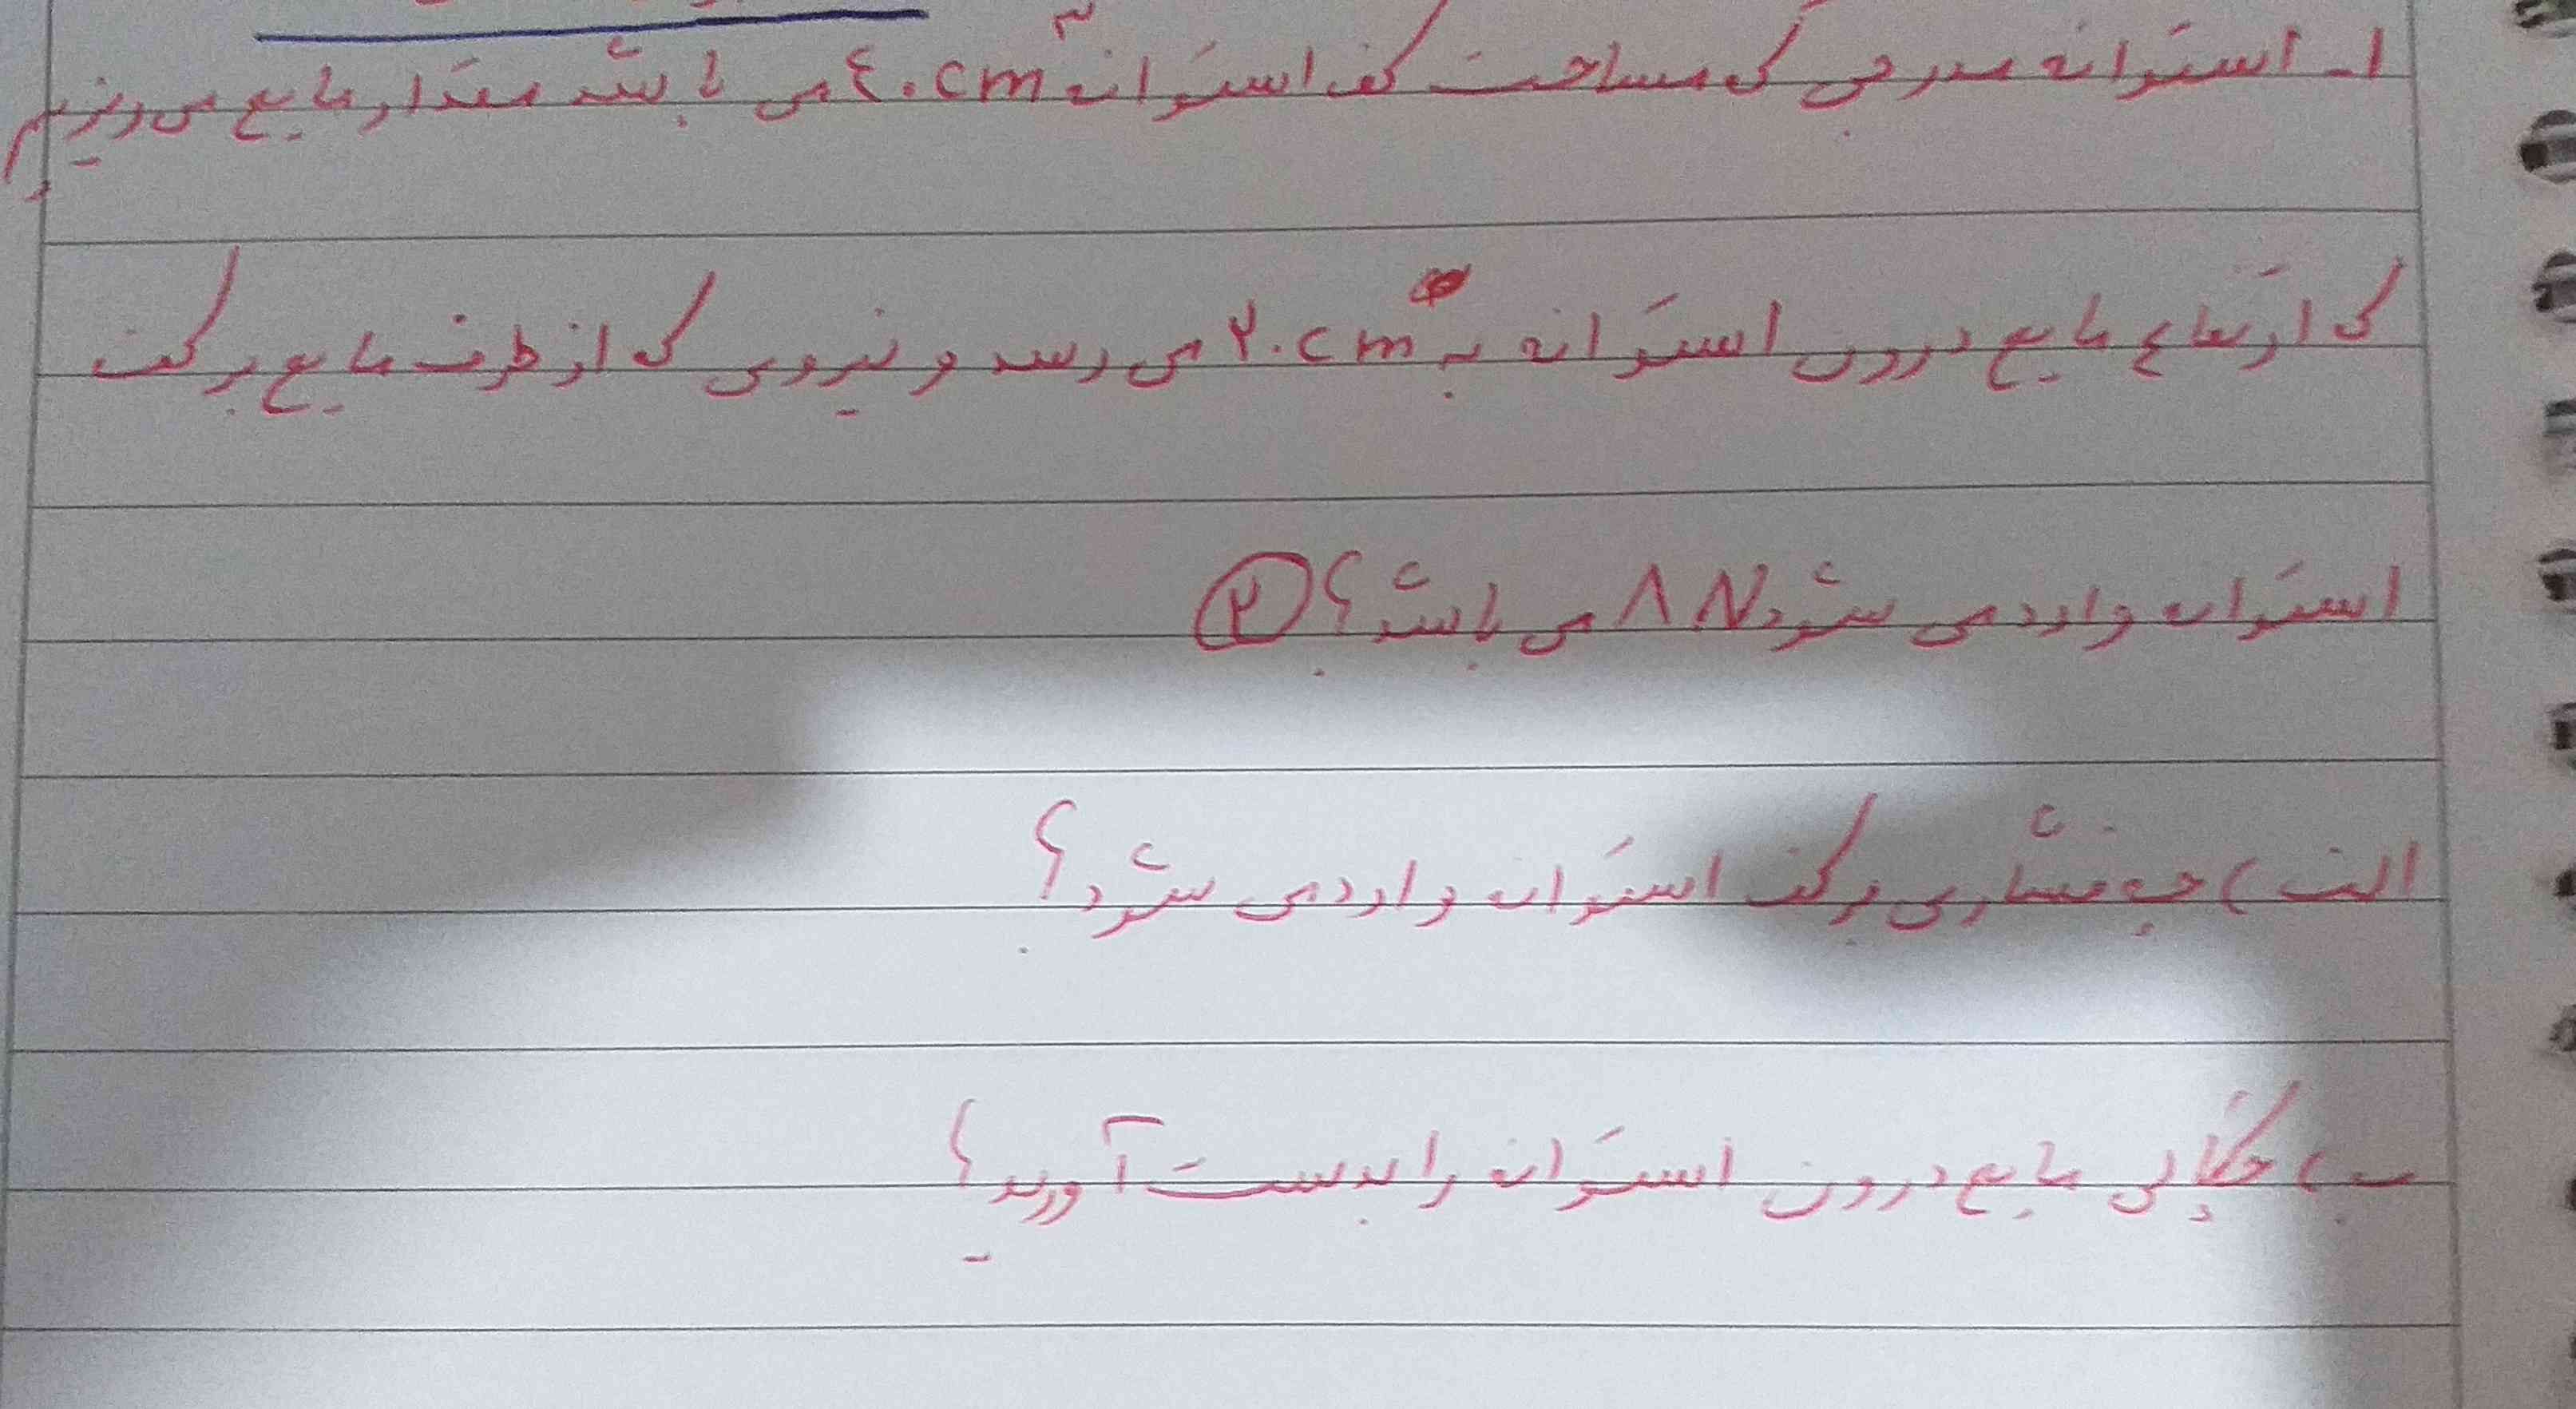 ۱ـ استوانه مدرجی که مساحت کف استوانه ۴۰cm۳ می باشد مقدار مایع می ریزیم
که ارتفاع مایع درون استوانه به ۲۰cm می رسد و نیروی که از طرف مایع بر کف
استوانه وارد می شود ۸N می باشد؟ ۲
الف) چه فشاری بر کف استوانه وارد می شود؟
ب) چگالی مایع درون استوانه را بدست آورید؟